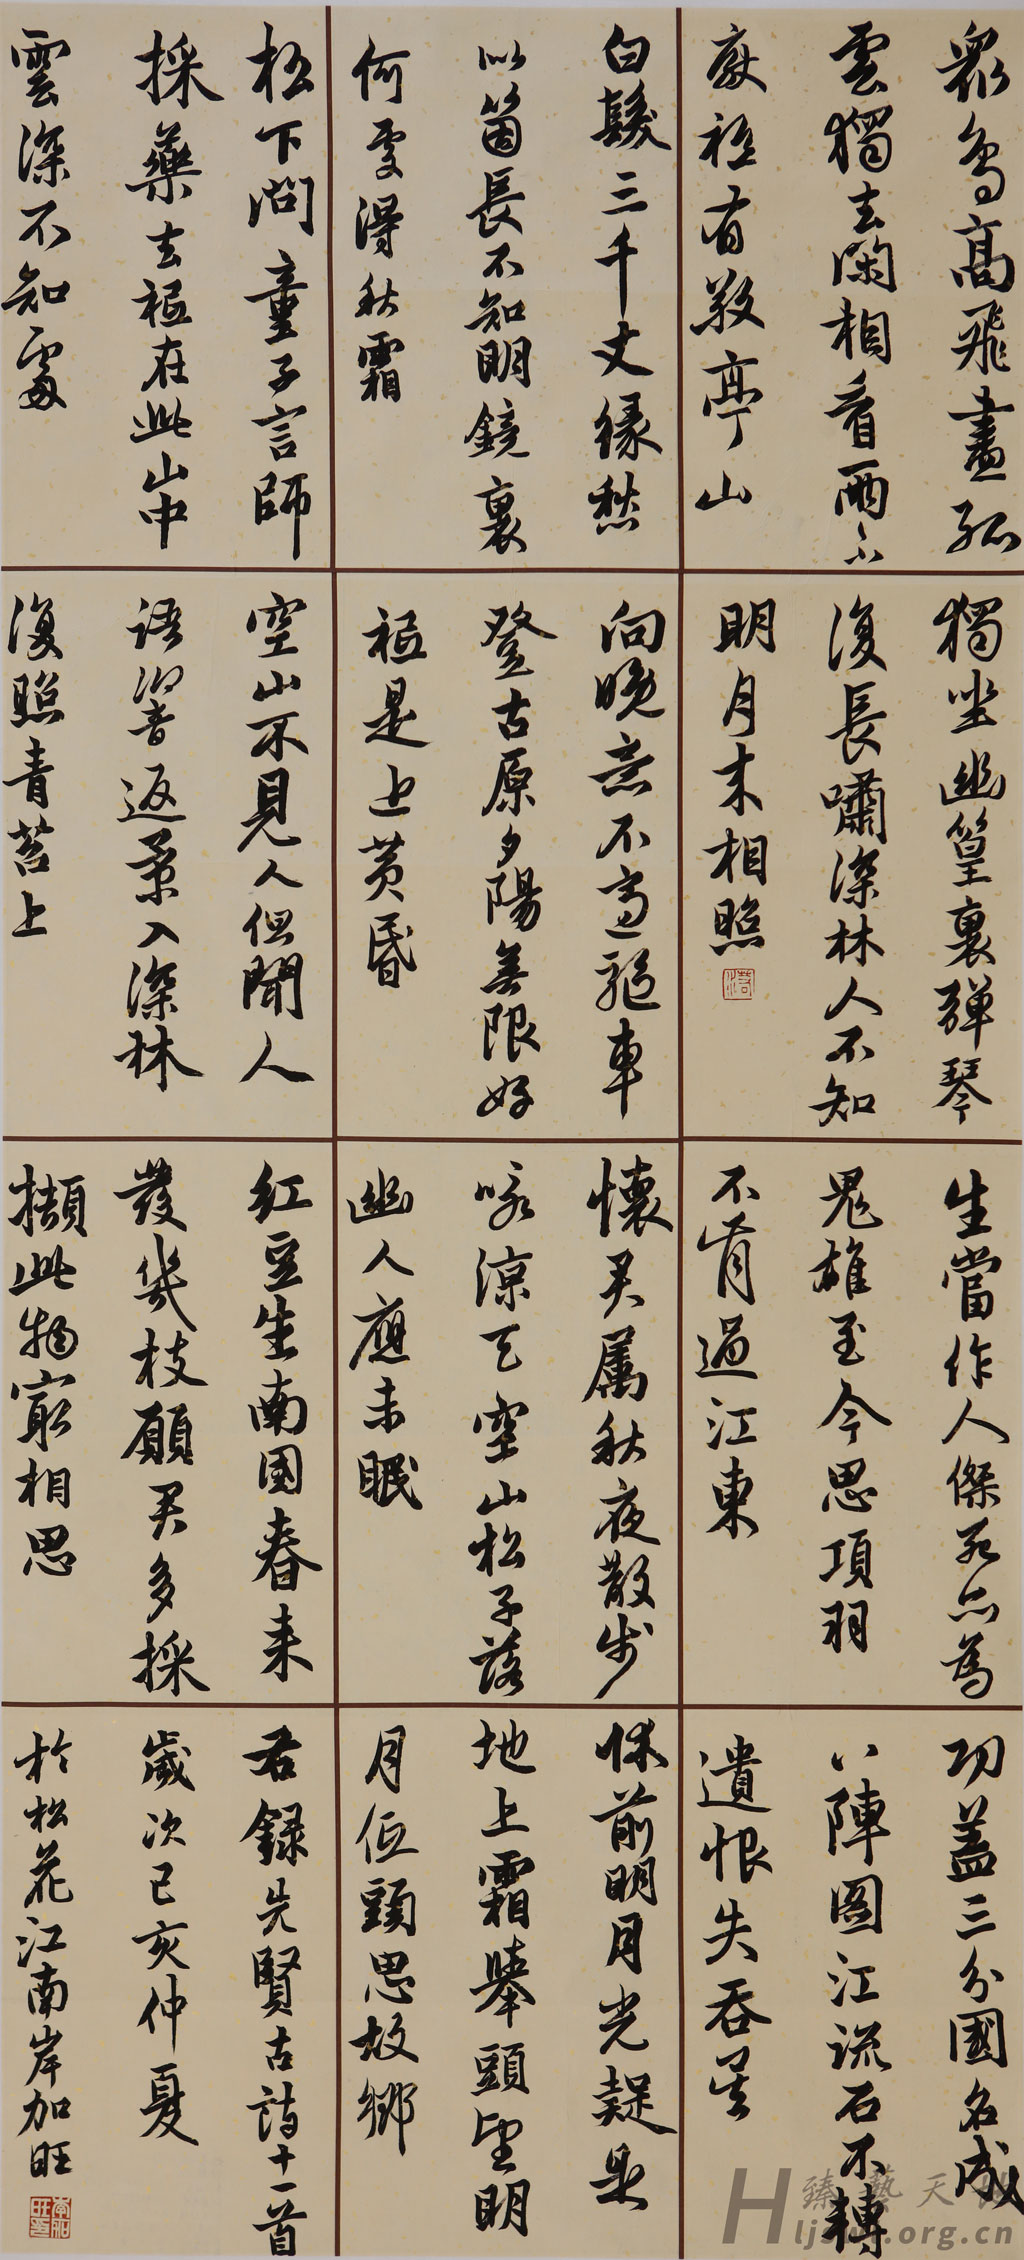 眾鳥高飛盡孤
雲獨去閑相看兩不
厭祗有敬亭山
白髮三千丈緣愁
似箇長不知明鏡裏
何處得秋霜
松下問童子言師
採藥去祗在此山中
雲深不知處
獨坐幽篁裏彈琴
復長嘯深林人不知
明月來相照
向晚意不適驅車
登古原夕陽無限好
祗是近黃昏
空山不見人但聞人
語響返景入深林
復照青苔上
生當作人傑死亦為
鬼雄至今思項羽
不肯過江東
懷君屬秋夜散步
詠涼天空山松子落
幽人應未眠
紅豆生南國春來
發幾枝願君多採
擷此物最相思
功蓋三分國名成
八陣圖江流石不轉
遺恨失吞吳
牀前明月光疑是
地上霜舉頭望明
月低頭思故鄉
右錄先賢古詩十一首
歲次己亥仲夏
於松花江南岸加旺
臻藝天
org.cn